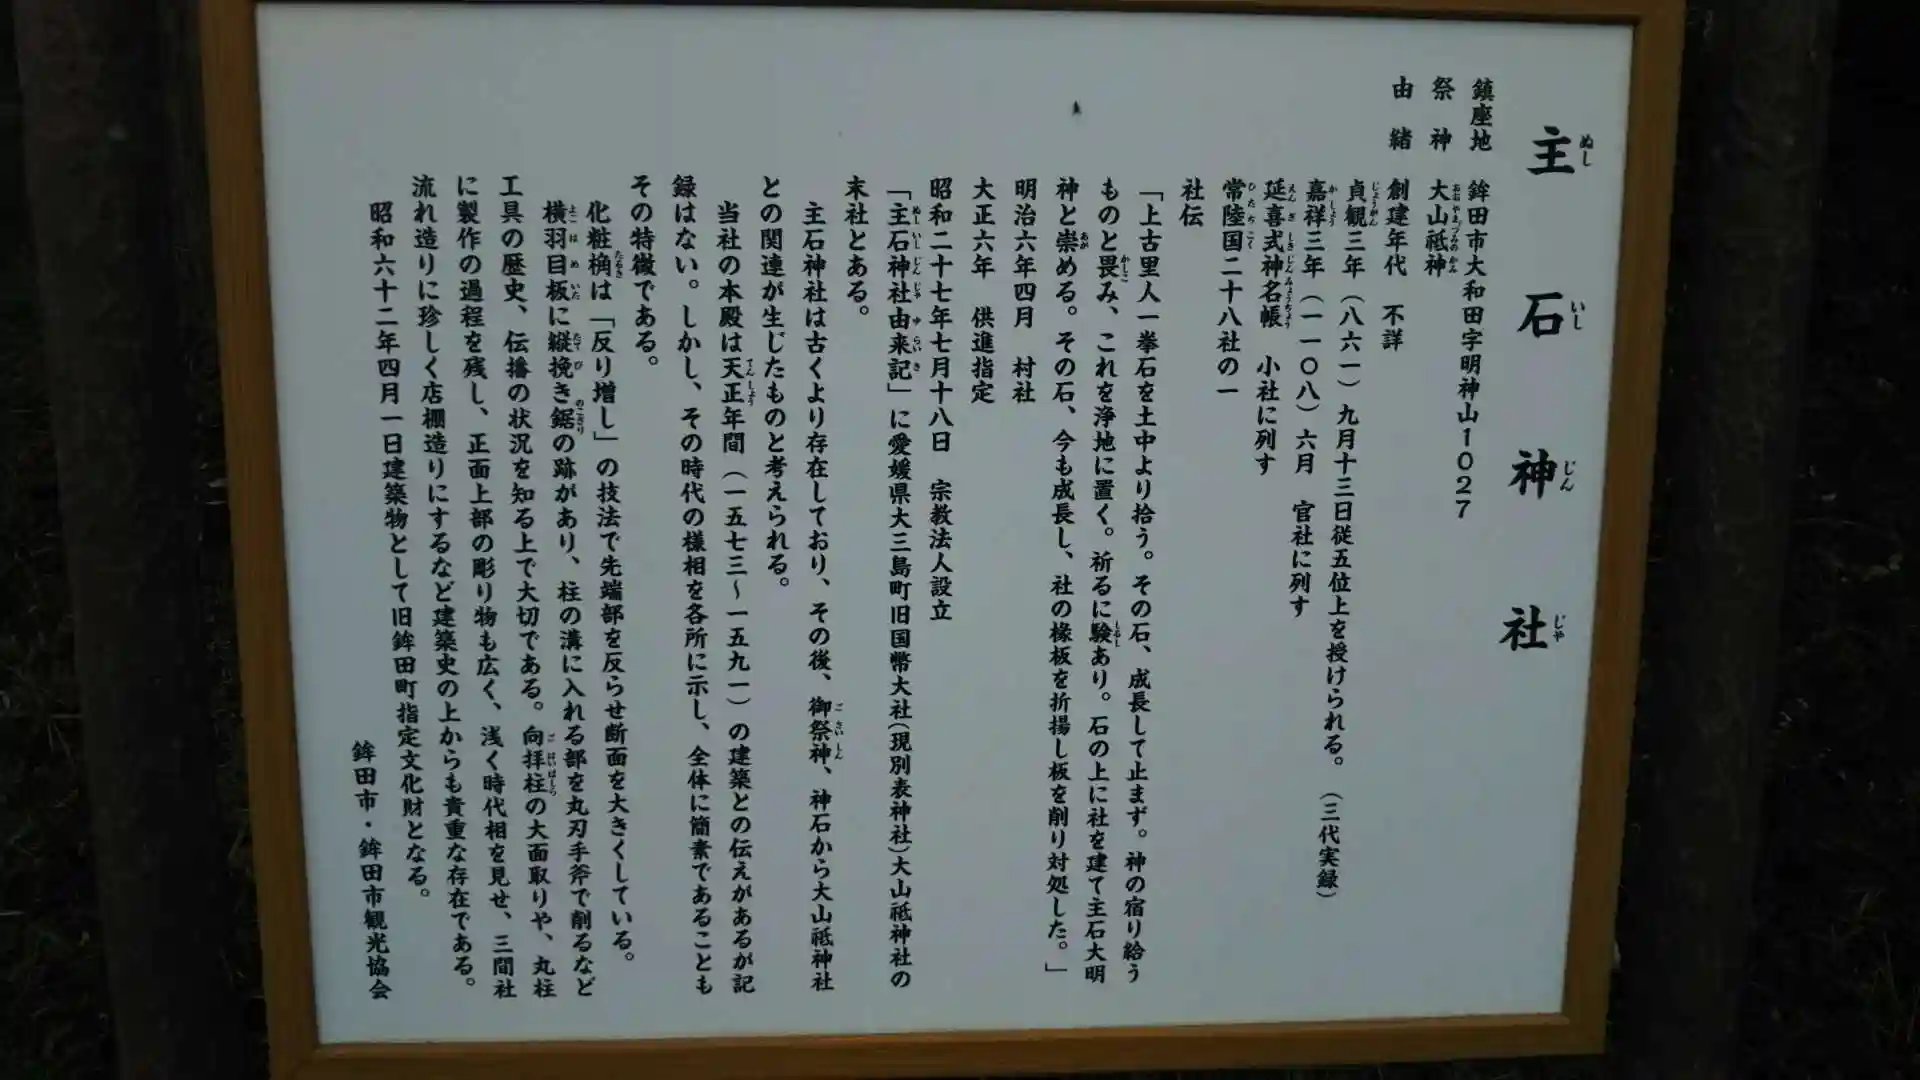 主石神社
鎮座地　鉾田市大和田字明神山1027
祭神　大山祗神
由緒　創建年代　不詳
貞観三年（八六一）九月十三日従五位上を授けられる。（三代実録）
嘉祥三年（一一〇八）六月　官社に列す
延喜式神名帳　小社に列す
常陸国二十八社の一
社伝
「上古里人一拳石を土中より拾う。その石、成長して止まず。神の宿り給う
ものと畏み、これを浄地に置く。祈るに験あり。石の上に社を建て主石大明
神と崇める。その石、今も成長し、社の椽板を折揚し板を削り対処した。」
明治六年四月　村社
大正六年　供進指定
昭和二十七年七月十八日　宗教法人設立
「主石神社由来記」に愛媛県大三島町旧国幣大社(現別表神社)大山祗神社の
末社とある。
主石神社は古くより存在しており、その後、御祭神、神石から大山祗神社
との関連が生じたものと考えられる。
当社の本殿は天正年間（一五七三〜一五九一）の建築との伝えがあるが記
録はない。しかし、その時代の様相を各所に示し、全体に簡素であることも
その特徴である。
化粧桷は「反り増し」の技法で先端部を反らせ断面を大きくしている。
横羽目板に縦挽き鋸の跡があり、柱の溝に入れる部を丸刃手斧で削るなど
工具の歴史、伝播の状況を知る上で大切である。向拝柱の大面取りや、丸柱
に製作の過程を残し、正面上部の彫り物も広く、浅く時代相を見せ、三間社
流れ造りに珍しく店棚造りにするなど建築史の上からも貴重な存在である。
昭和六十二年四月一日建築物として旧鉾田町指定文化財となる。
鉾田市・鉾田市観光協会